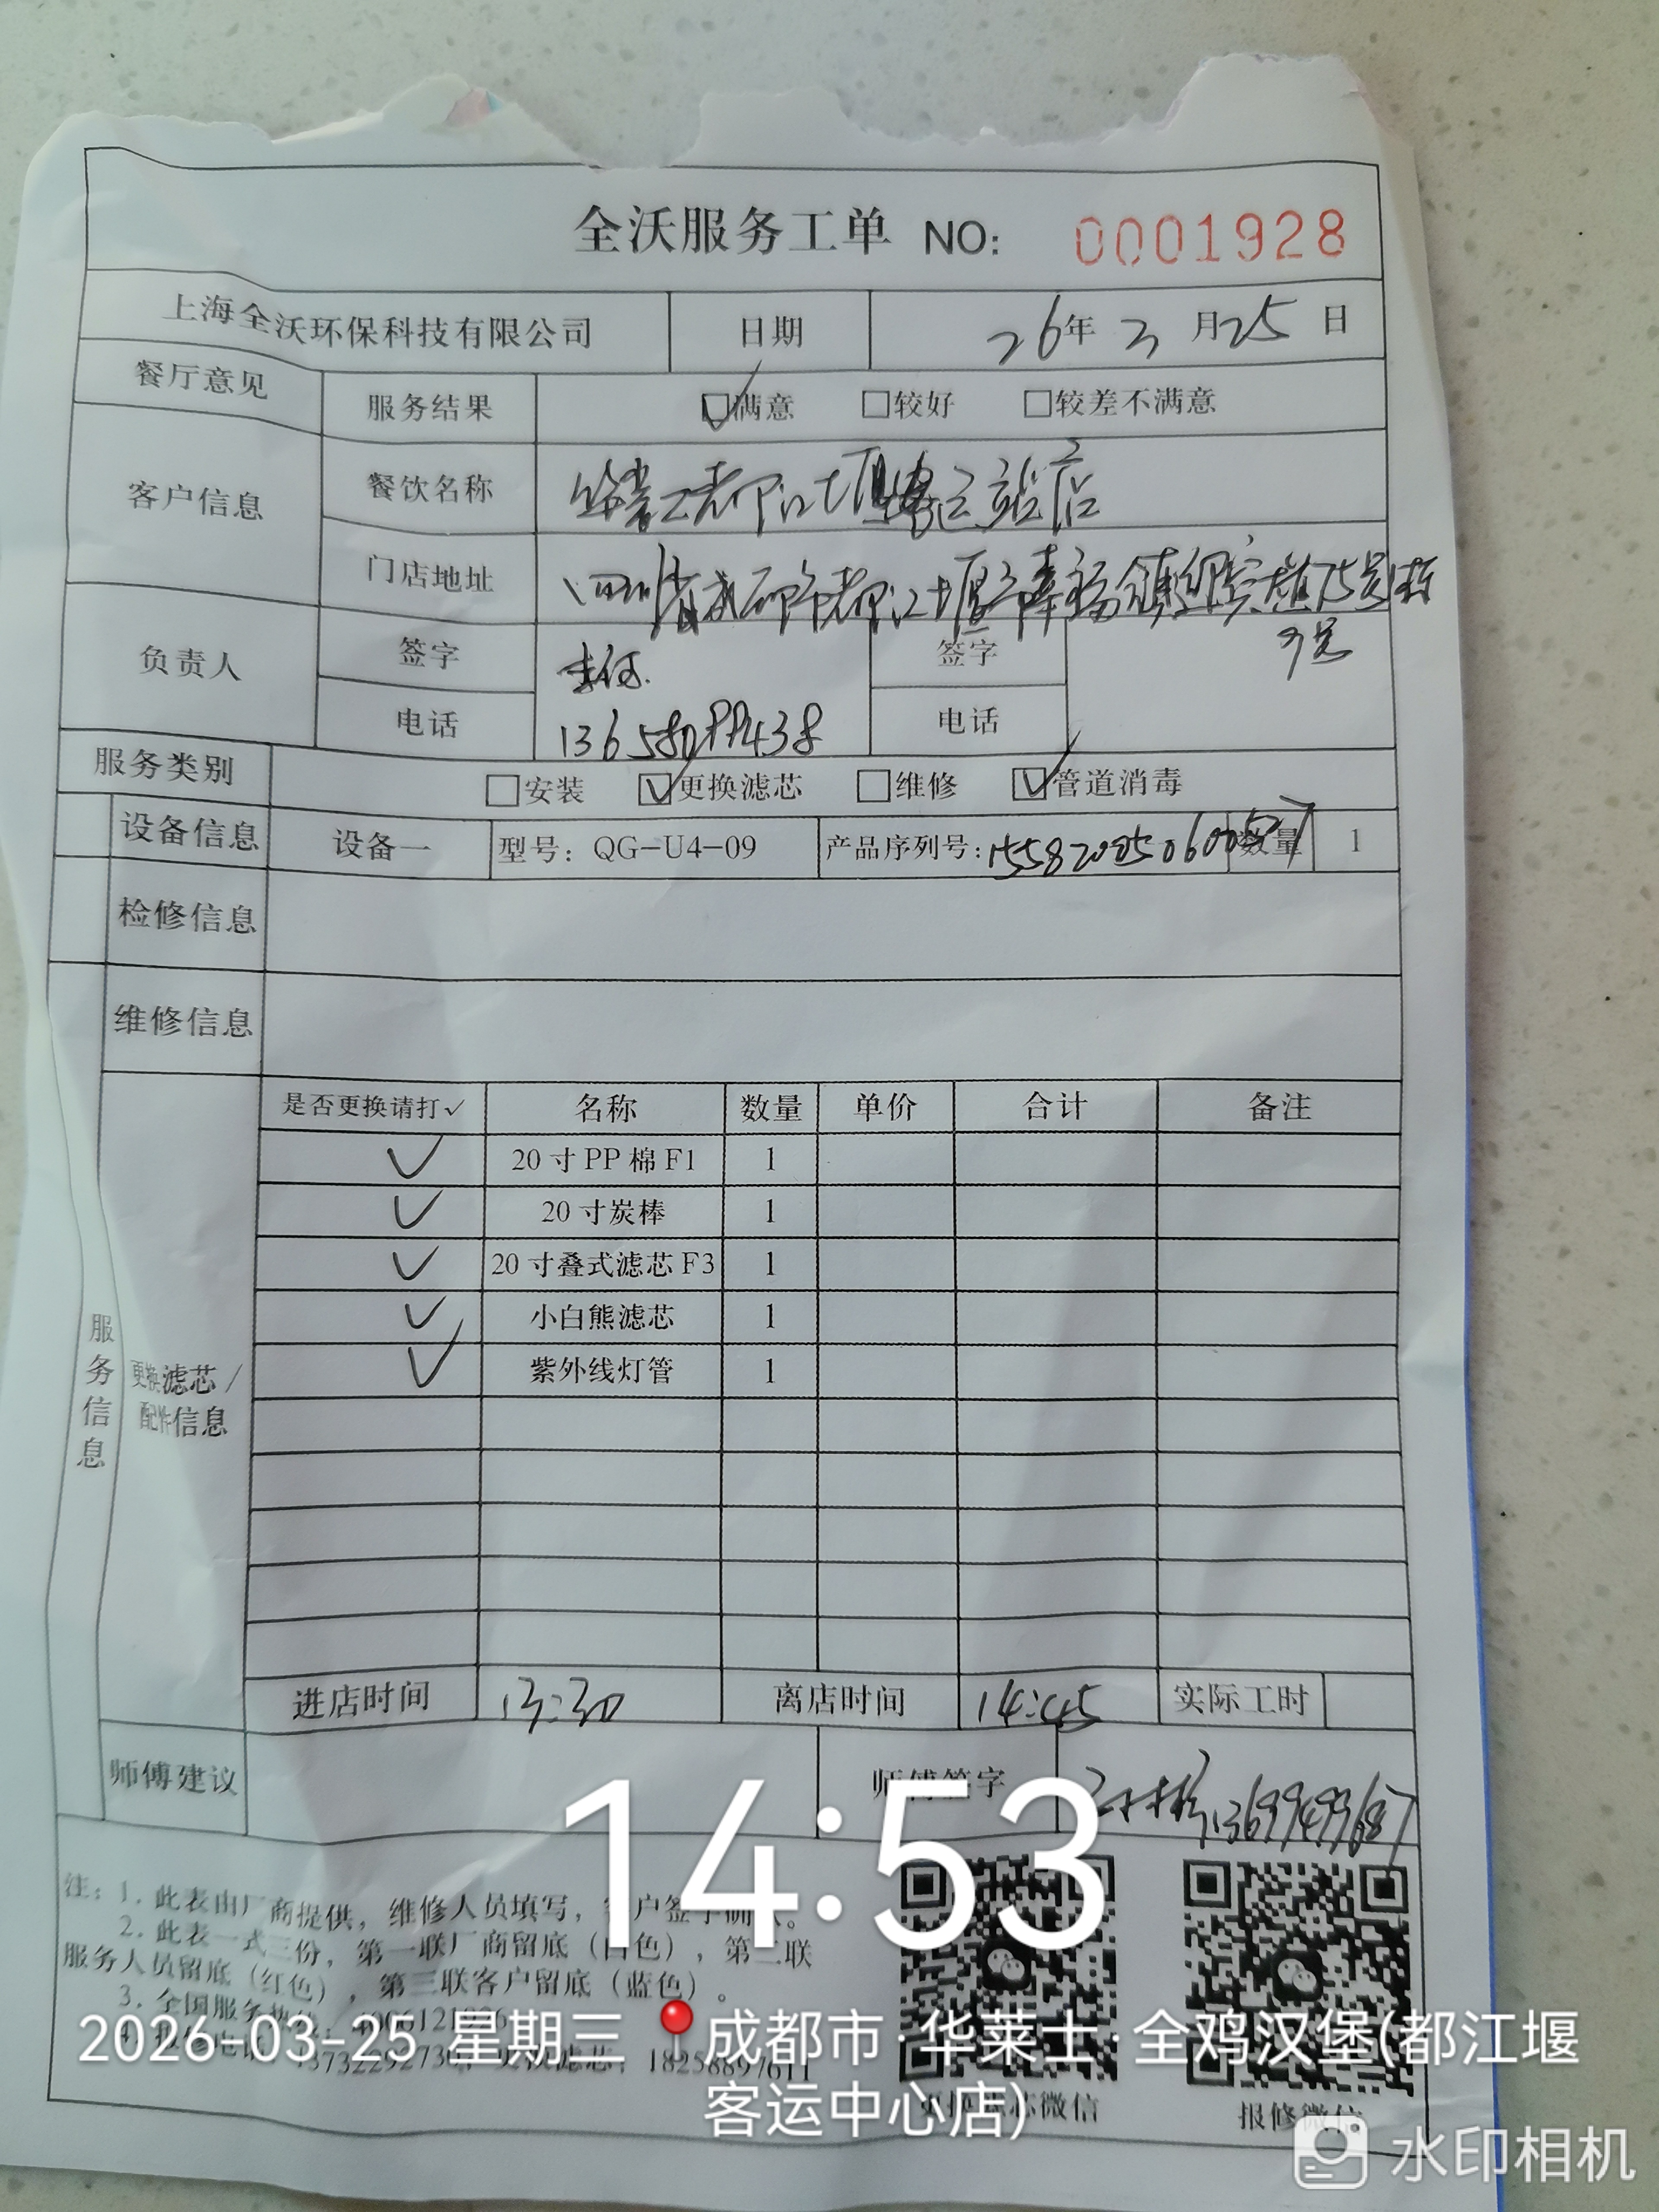 全沃服务工单 NO: 0001928
上海全沃环保科技有限公司 日期 26年3月25日
餐厅意见 服务结果 □满意 □较好 □较差不满意
客户信息 餐饮名称 华莱士都江堰客运站店
门店地址 四川省成都市都江堰市幸福镇 75号附
9号
负责人 签字 签字
电话 电话
服务类别 □安装 ☑更换滤芯 □维修 ☑管道消毒
设备信息 设备一 型号：QG-U4-09 产品序列号: 数量 1
检修信息
维修信息
是否更换请打✓ 名称 数量 单价 合计 备注
✓ 20寸PP棉F1 1
✓ 20寸炭棒 1
✓ 20寸叠式滤芯F3 1
✓ 小白熊滤芯 1
✓ 紫外线灯管 1
服务信息
更换滤芯/
配件信息
进店时间 13:30 离店时间 14:45 实际工时
师傅建议 师傅签字 13699499687
14:53
注：1. 此表由厂商提供，维修人员填写，客户签字确认。
2. 此表一式三份，第一联厂商留底（白色），第二联
服务人员留底（红色），第三联客户留底（蓝色）。
3. 全国服务热线：
18258897611
2026-03-25 星期三 成都市·华莱士·全鸡汉堡(都江堰
客运中心店)
更换滤芯微信 报修微信
水印相机